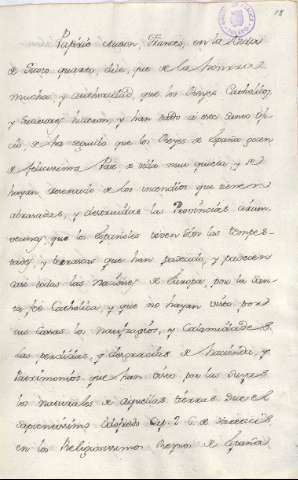 18
Papirio Masson, Frances, en la Vida
de Sixto quarto, dize, que de la honrra
mucha, y authoridad, que los Reyes Catholicos
y sucesores hicieron, y han dado a este Santo Ofi-
cio, se ha seguido que los Reyes de España gocen
de felicissima Paz de vida muy quieta y se
hayan de los incendios que tienen
abrasadas, y destruidas las Provincias circum-
vecinas, que los Españoles vean las tempes-
tades, y que han padecido, y padecen
casi todas las Naciones de Europa, por la San-
ta fe Catholica, y que no hayan visto por
sus Casas los naufragios, y Calamidades
las perdidas, y desgracias de haciendas, y
Patrimonios que han visto por las suyas
los naturales de aquellas tierras. Dice el
sapientissimo Cap. 2
en los Religiosissimos Reynos de España